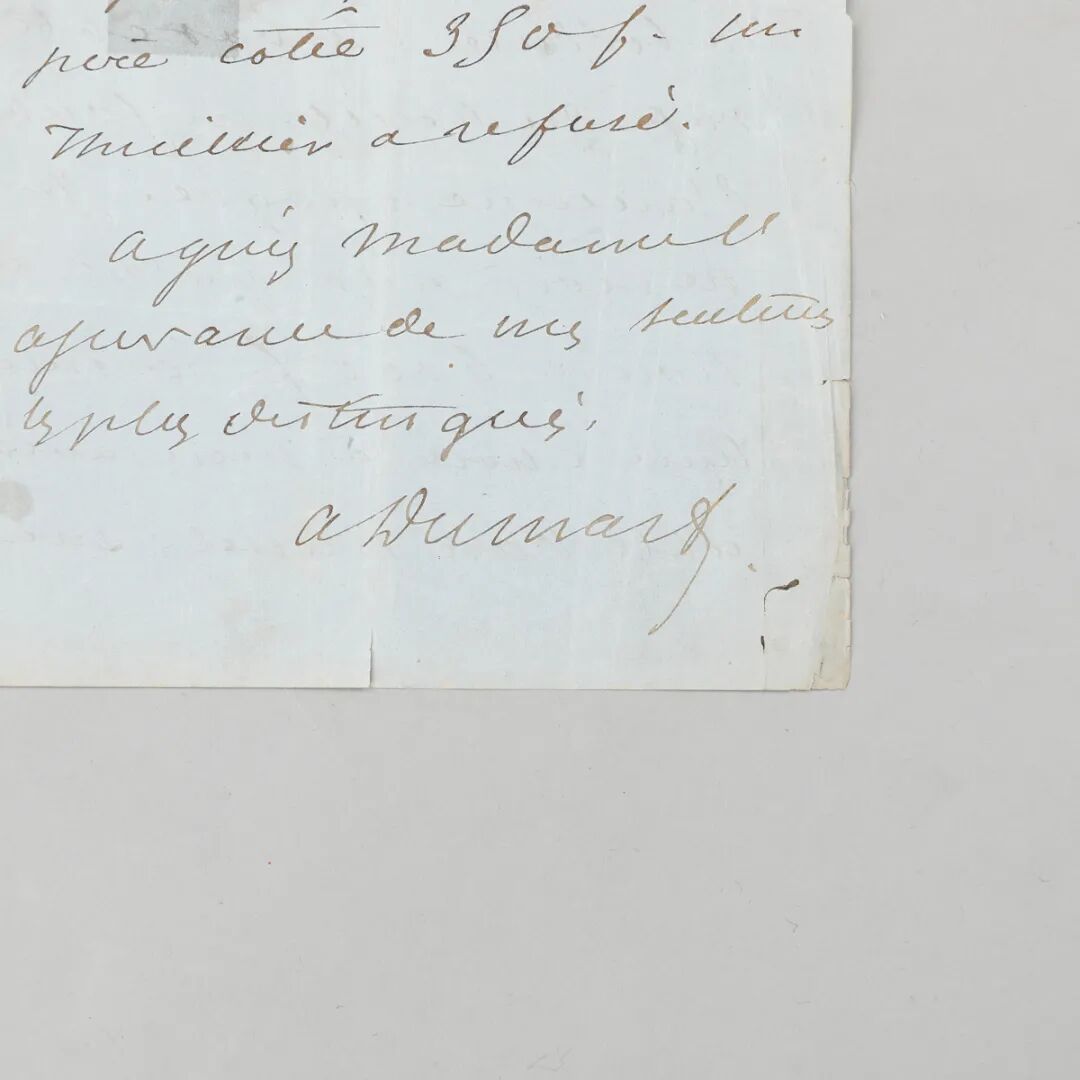 père coûte 350 f. un
Thuillier a refusé.
agréez madame l
assurance de mes sentims
les plus distingués.
a Dumas